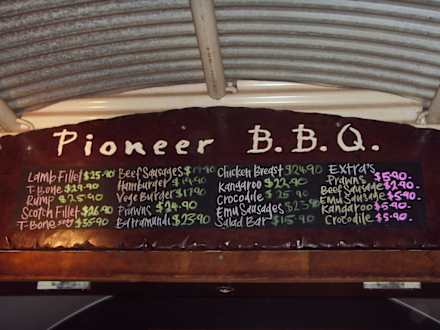 Pioneer B.B.Q.
Lamb Fillet $25.90
T.Bone $29.90
Rump $25.90
Scotch Fillet $26.90
T-Bone $35.90
Beef Sausages $17.90
Hamburger $17.90
Vege Burger $17.90
Prawns $24.90
Barramundi $23.90
Chicken Breast $24.90
Kangaroo $22.90
Crocodile $25.90
Emu Sausages
Salad Bar $15.90
Extra's
Prawns $5.90
Beef Sausage $2.90
Emu Sausage $5.90
Kangaroo $5.90
Crocodile $5.90